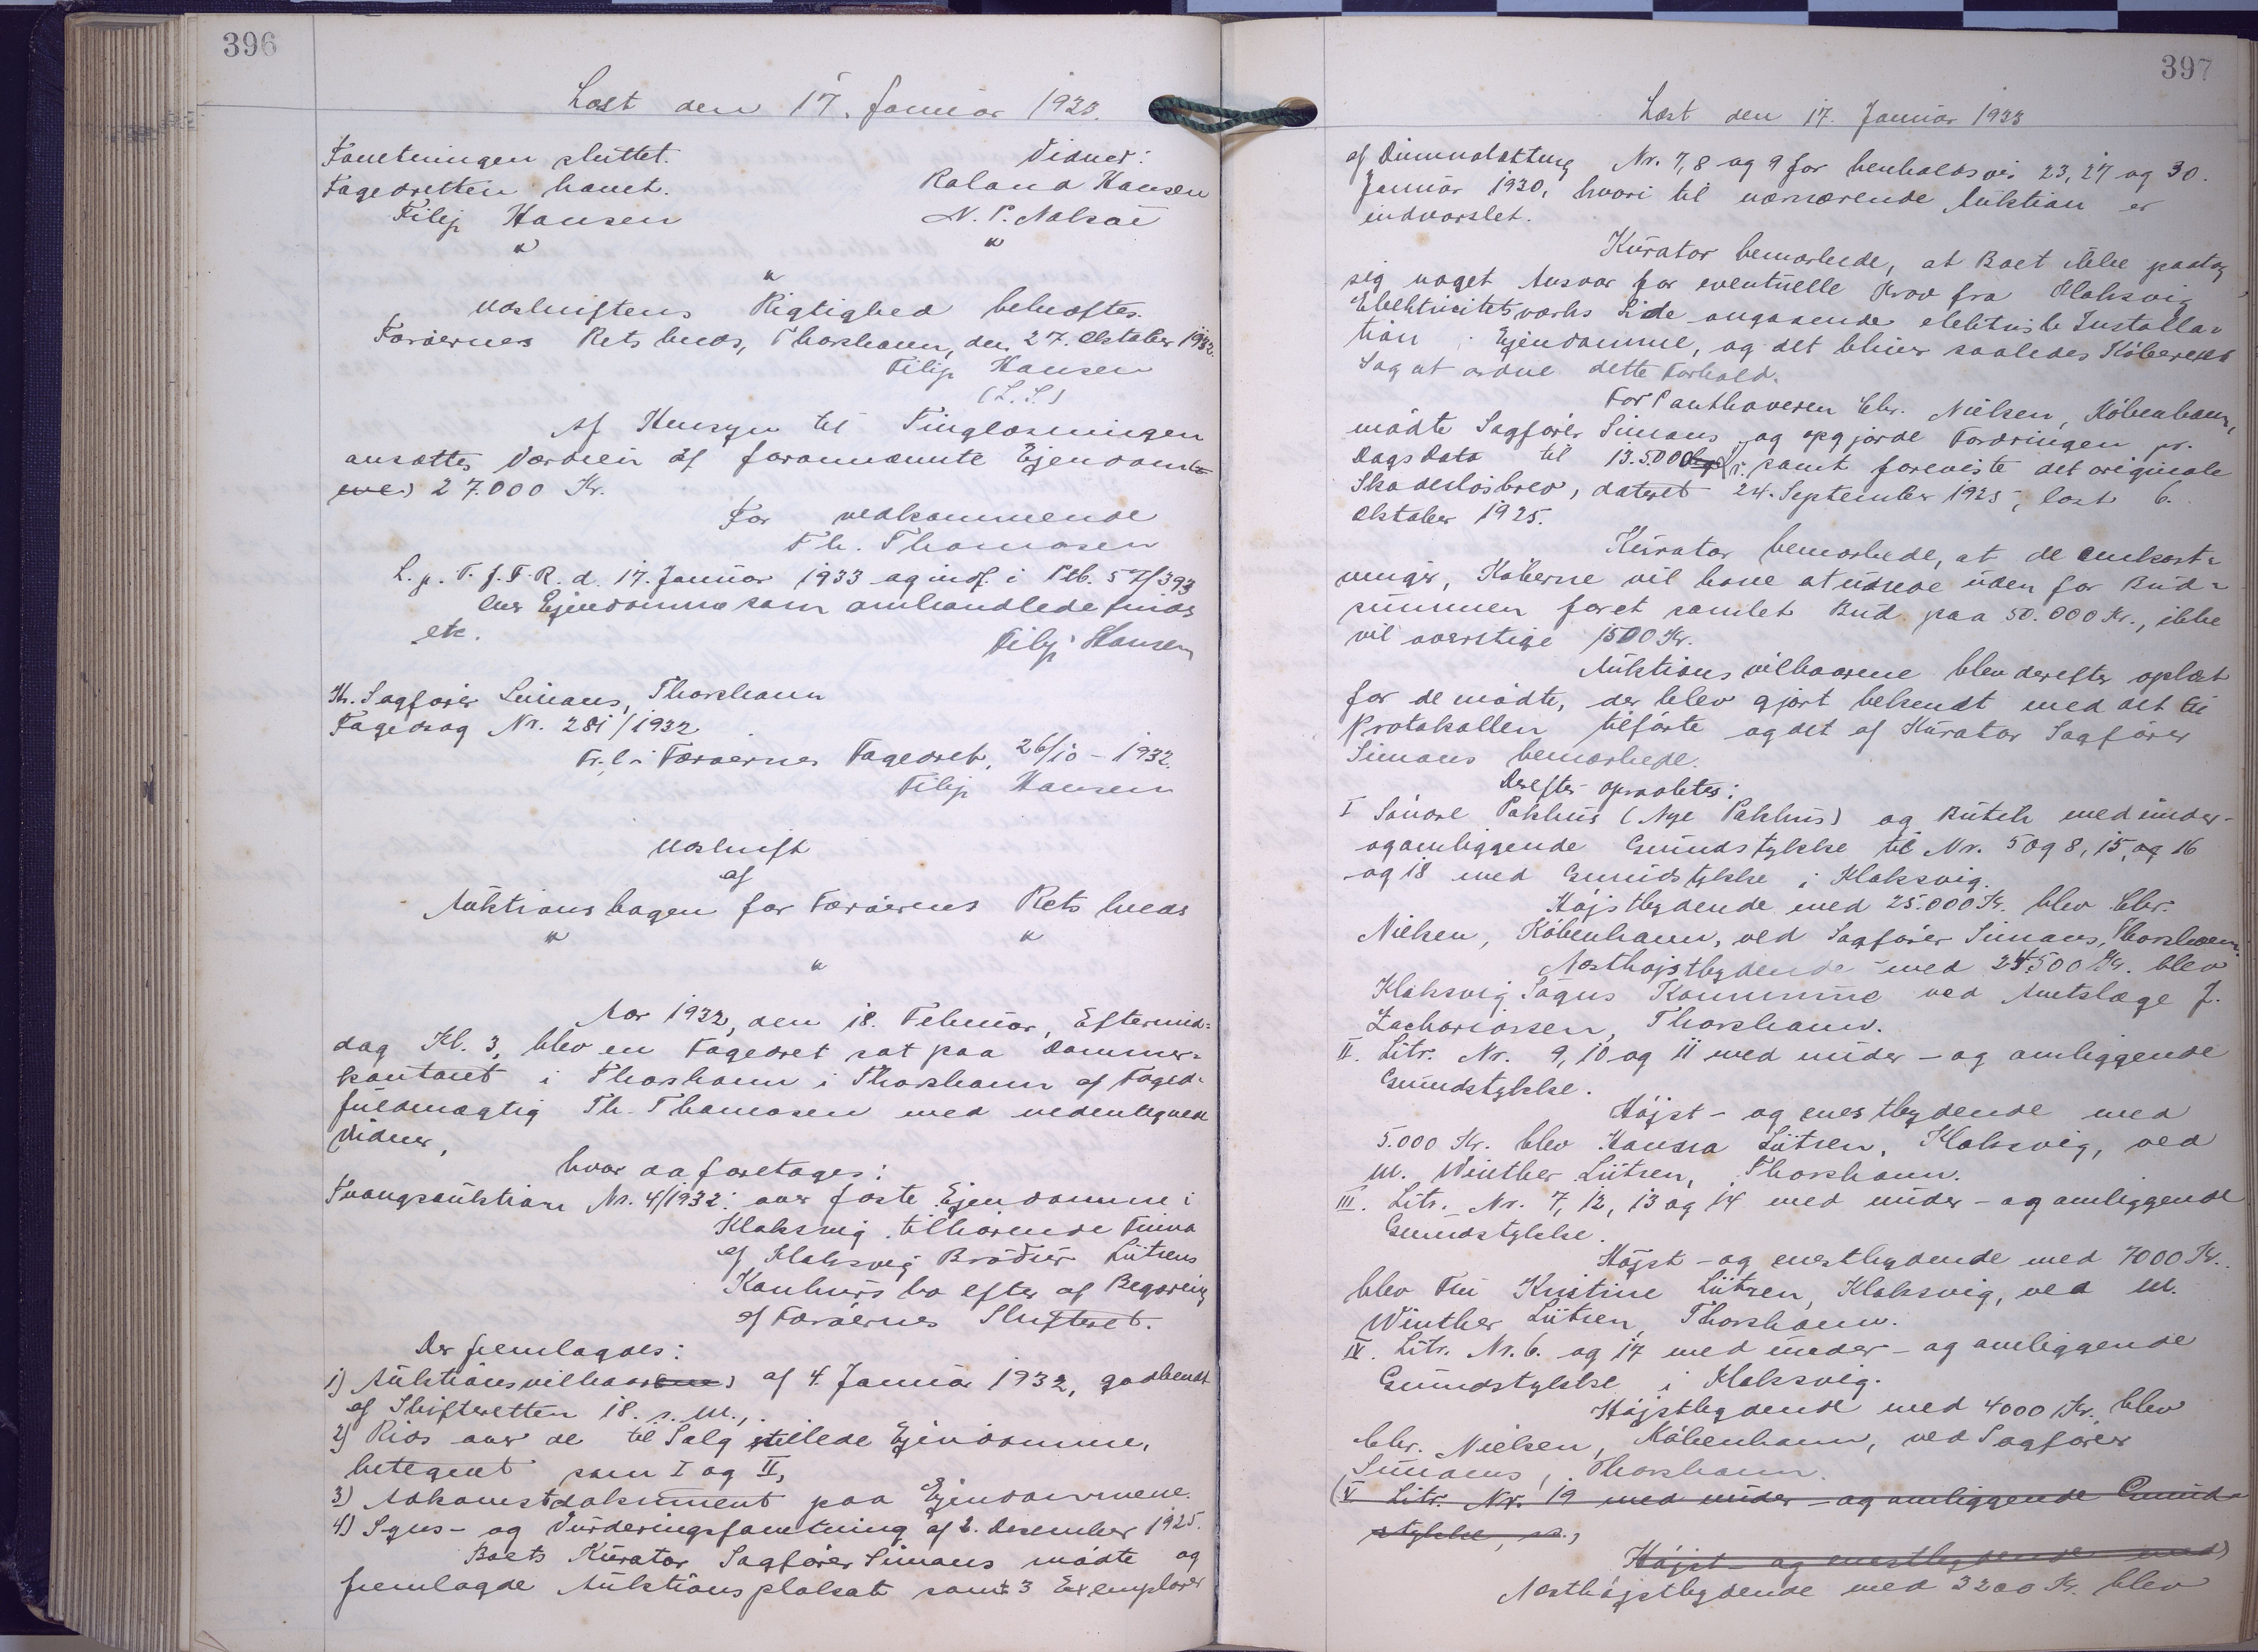 396
Læst den 17. Januar 1933.
Forretningen sluttet.
Vidner:
Fogedretten hævet.
Roland Hansen
Filip Hansen
N. P. Nolsøe
"
"
"
Udskriftens Rigtighed bekræftes.
Færøernes Retskreds, Thorshavn, den 27. Oktober 1932.
Filip Hansen
(L.S.)
Af Hensyn til Tinglæsningen
ansættes Værdien af forannævnte Ejendomme
27.000 Kr.
For vedkommende
Th. Thomasen
L. p. T. f. F. R. d. 17. Januar 1933 og indf. i Ptb. 5 T/393
over Ejendomme som omhandlede findes
etc.
Filip Hansen
Hr. Sagfører Simans, Thorshavn
Fogedsag Nr. 281/1932
Fr. l. i Færøernes Fogedret, 26/10-1932.
Filip Hansen
Udskrift
af
Auktionsbogen for Færøernes Retskreds
"
"
"
Aar 1932, den 18. Februar, Eftermid=
dag Kl. 3, blev en Fogedret sat paa Dommer=
kontoret i Thorshavn i Thorshavn af Foged=
fuldmægtig Th. Thomasen med undertegnede
Vidner,
hvor da foretages:
Tvangsauktion Nr. 4/1932: over faste Ejendomme i
Klaksvig tilhørende Firma
af Klaksvig Brødrer Lützens
Konkursbo efter af Begæring
af Færøernes Skifteret.
Der fremlagdes:
1) Auktionsvilkaarene af 4. Januar 1932, godkendt
af Skifteretten 18. s. M.,
2) Rids over de til Salg stillede Ejendomme,
betegnet som I og II,
3) Adkomstdokument paa Ejendommene.
4) Syns- og Vurderingsforretning af 2. Desember 1925.
Boets Kurator Sagfører Simans mødte og
fremlagde Auktionsplakat samt 3 Exemplarer
397
Læst den 17. Januar 1933
af Dimmalætting Nr. 7, 8 og 9 for henholdsvis 23, 27 og 30.
Januar 1930, hvori til nærværende Auktion er
indvarslet.
Kurator bemærkede, at Boet ikke paatog
sig noget Ansvar for eventuelle Krav fra Klaksvig
Elektricitetsværks Side angaaende elektrisk Installa=
tion i Ejendomme, og det bliver saaledes Køberens
Sag at ordne dette Forhold.
For Panthaveren Chr. Nielsen, København,
mødte Sagfører Simans og opgjorde Fordringen pr.
Dags Dato til 13.500 Kr. samt foreviste det originale
Skadesløsbrev, dateret 24. September 1925, læst 6.
Oktober 1925.
Kurator bemærkede, at de Omkost=
ninger, Køberne vil have at udrede uden for Bud=
summen for et samlet Bud paa 50.000 Kr., ikke
vil overstige 1500 Kr.
Auktionsvilkaarene blev derefter oplæst
for de mødte, der blev gjort bekendt med det til
Protokollen tilførte og det af Kurator Sagfører
Simans bemærkede.
Derefter opraabtes:
I Søndre Pakhus (Nye Pakhus) og Butik med under-
og omliggende Grundstykke til Nr. 5 og 8, 15, og 16
og 18 med Grundstykke i Klaksvig.
Højstbydende med 25.000 Kr. blev Chr.
Nielsen, København, ved Sagfører Simans, Thorshavn.
Næsthøjstbydende med 24.500 Kr. blev
Klaksvig Sogns Kommune ved Amtslæge J.
Zachariassen, Thorshavn.
II. Litr. Nr. 9, 10 og 11 med under- og omliggende
Grundstykke.
Højst- og enestbydende med
5.000 Kr. blev Handra Lützen, Klaksvig, ved
M. Winther Lützen, Thorshavn.
III. Litr. Nr. 7, 12, 13 og 14 med under- og omliggende
Grundstykke.
Højst- og enestbydende med 7000 Kr.
blev Fru Kristine Lützen, Klaksvig, ved M.
Winther Lützen, Thorshavn.
IV. Litr. Nr. 6. og 17 med under- og omliggende
Grundstykke i Klaksvig.
Højstbydende med 4000 Kr. blev
Chr. Nielsen, København, ved Sagfører
Simans, Thorshavn.
(V Litr. Nr. 19 med under- og omliggende Grund=
stykke,
Højst- og enestbydende med)
Næsthøjstbydende med 3200 Kr. blev